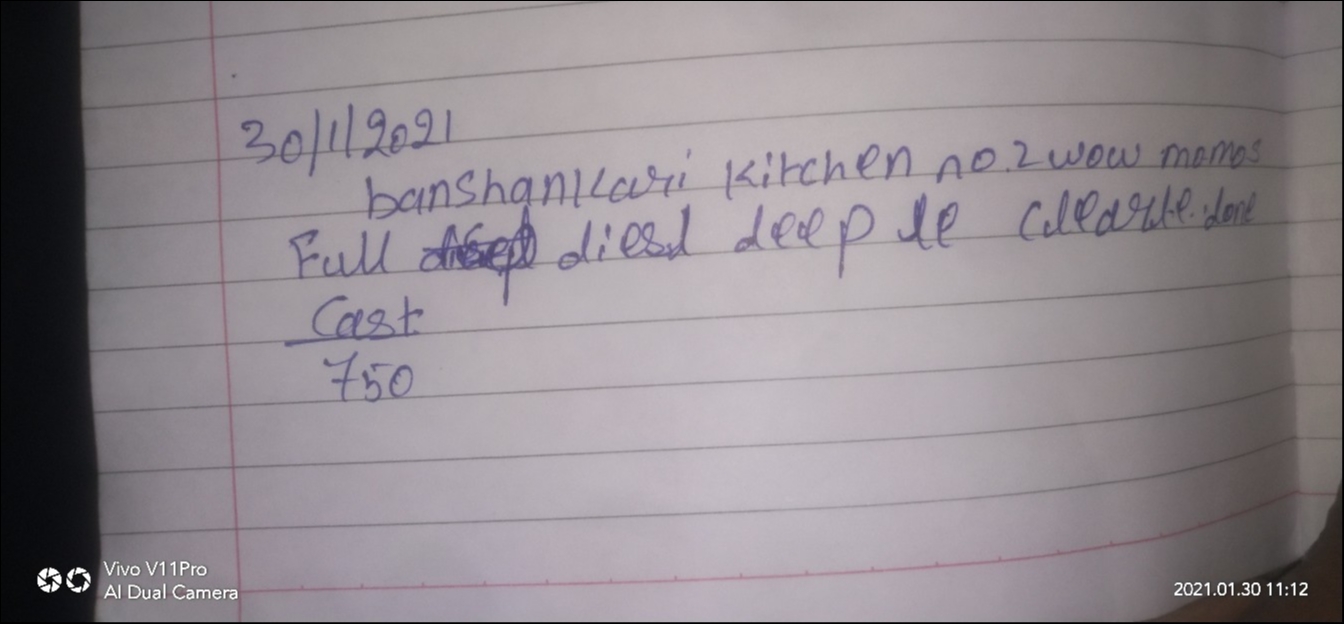 30/1/2021
banshankari kitchen no.2 wow momos
Full diesd deep le done
Cast
750
Vivo V11Pro
AI Dual Camera
2021.01.30 11:12